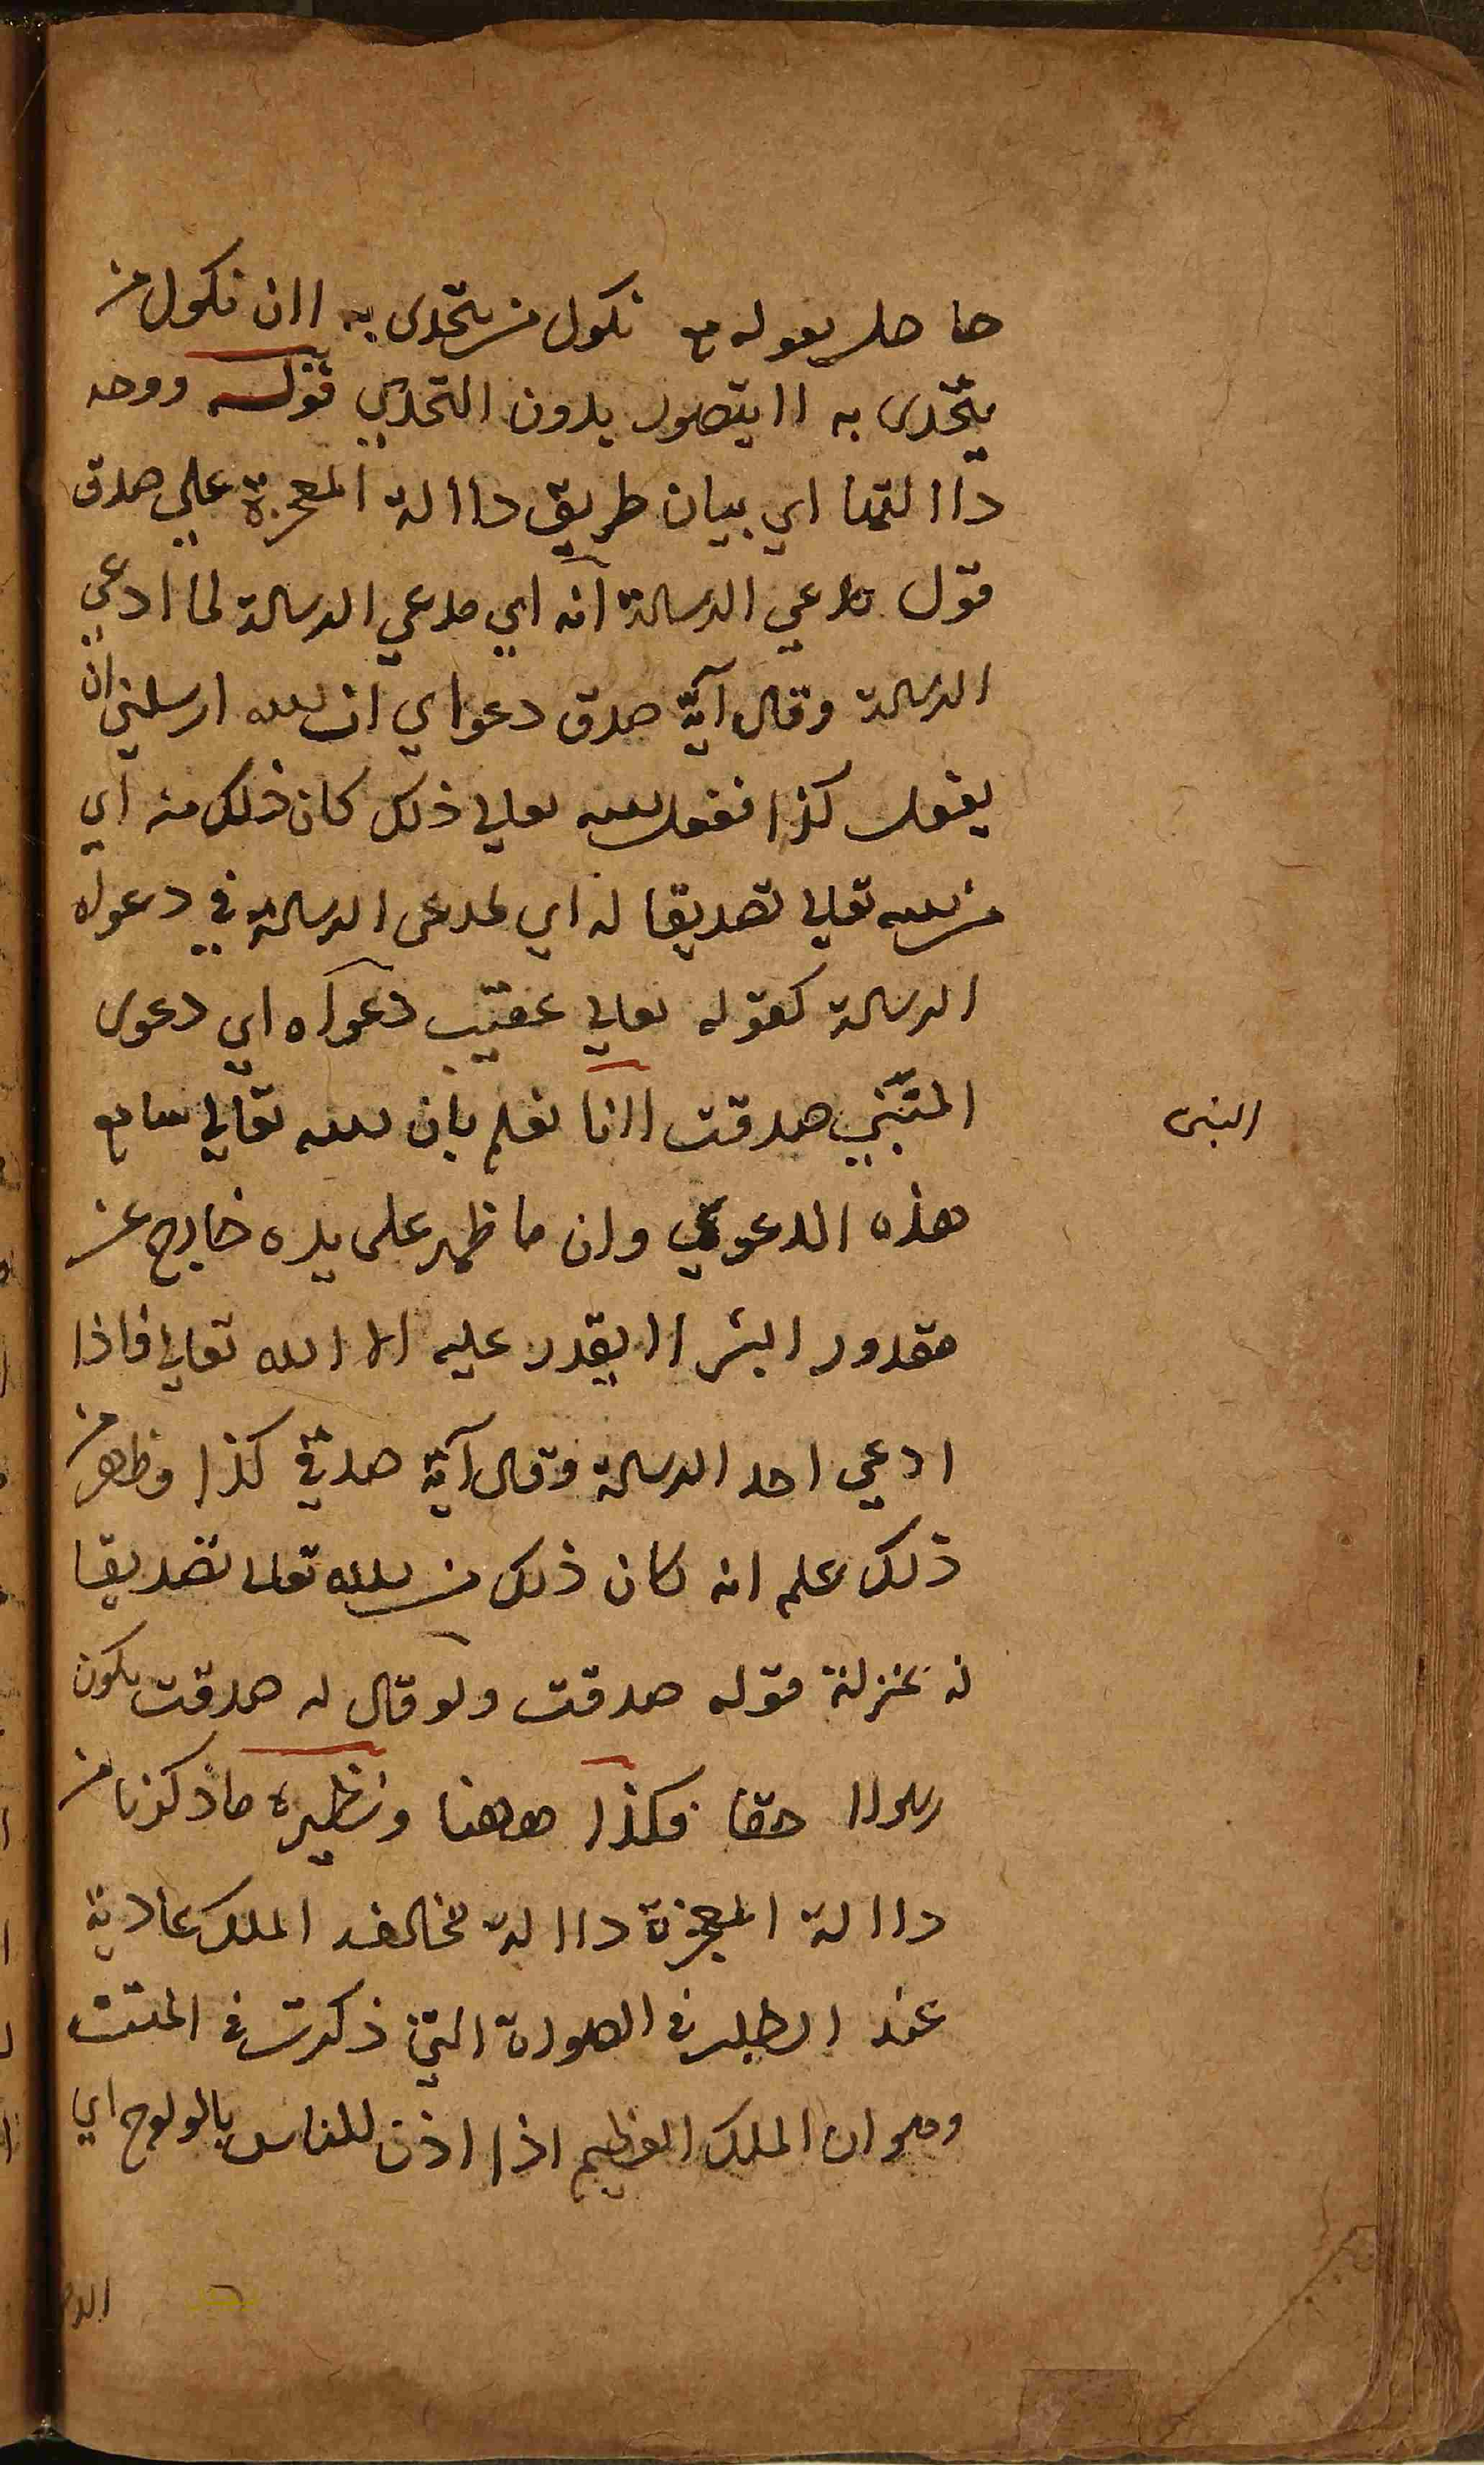 حاصل بقوله مع نكول من يتحدى به لان نكول من
يتحدى به لا يتصور بدون التحدي قوله ووجه
دلالتها اي بيان طريق دلالة المعجزة علي صدق
قول مدعي الرسالة انه اي مدعي الرسالة لما ادعي
الرسالة وقال آية صدق دعواي ان الله ارسلني ان
يفعل كذا ففعل الله تعالي ذلك كان ذلك منه اي
من الله تعالي تصديقا له اي لمدعى الرسالة في دعواه
الرسالة كقوله تعالي عقيب دعواه اي دعوى
المتنبي صدقت لانا نعلم بان الله تعالي سامع
النبى
هذه الدعوي وان ما ظهر على يده خارج عن
مقدور البشر لا يقدر عليه الا الله تعالي فاذا
ادعي احد الرسالة وقال آية صدقي كذا وظهر من
ذلك علم انه كان ذلك من الله تعالى تصديقا
له بمنزلة قوله صدقت ولو قال له صدقت يكون
رسولا حقا فكذا ههنا ونظيره ما ذكرنا من
دلالة المعجزة دلالة مخالفة الملك عادية
عند الطلب في الصورة التي ذكرت في المتن
وهو ان الملك العظيم اذا اذن للناس بالولوج اي